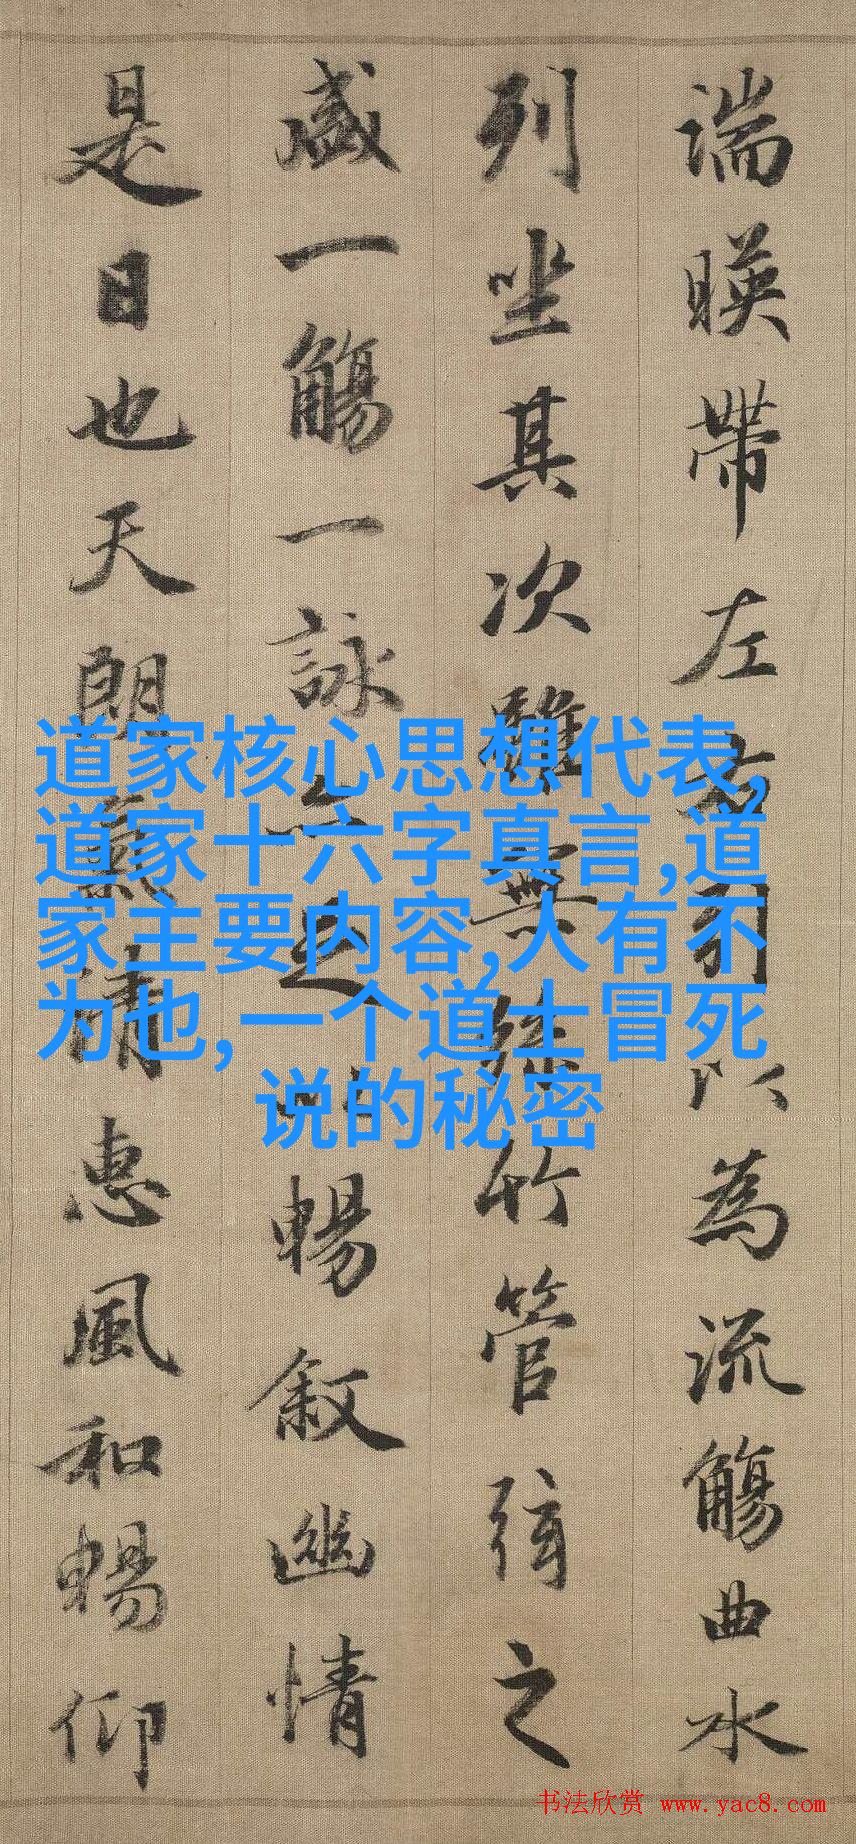 湍暎帶左右引以為流觴曲水
列坐其次雖無絲竹管弦之
盛一觴一詠亦足以暢叙幽情
是日也天朗氣清惠風和暢仰
道家核心思想代表,
道家十六字真言,道
家主要内容,人有不
为也,一个道士冒死
说的秘密
书法欣赏 www.yac8.com